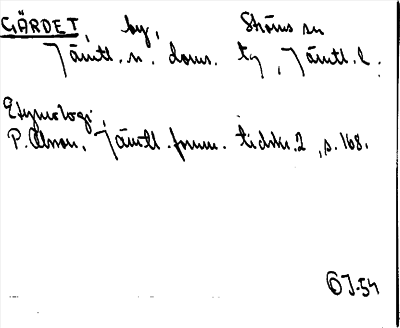 GÄRDET, by, Ströms sn
Jämtl. n. doms. tg, Jämtl. l.
Etymologi:
P. Olsson, Jämtl. fornm. tidskr. 2, s. 168.
OJ-54